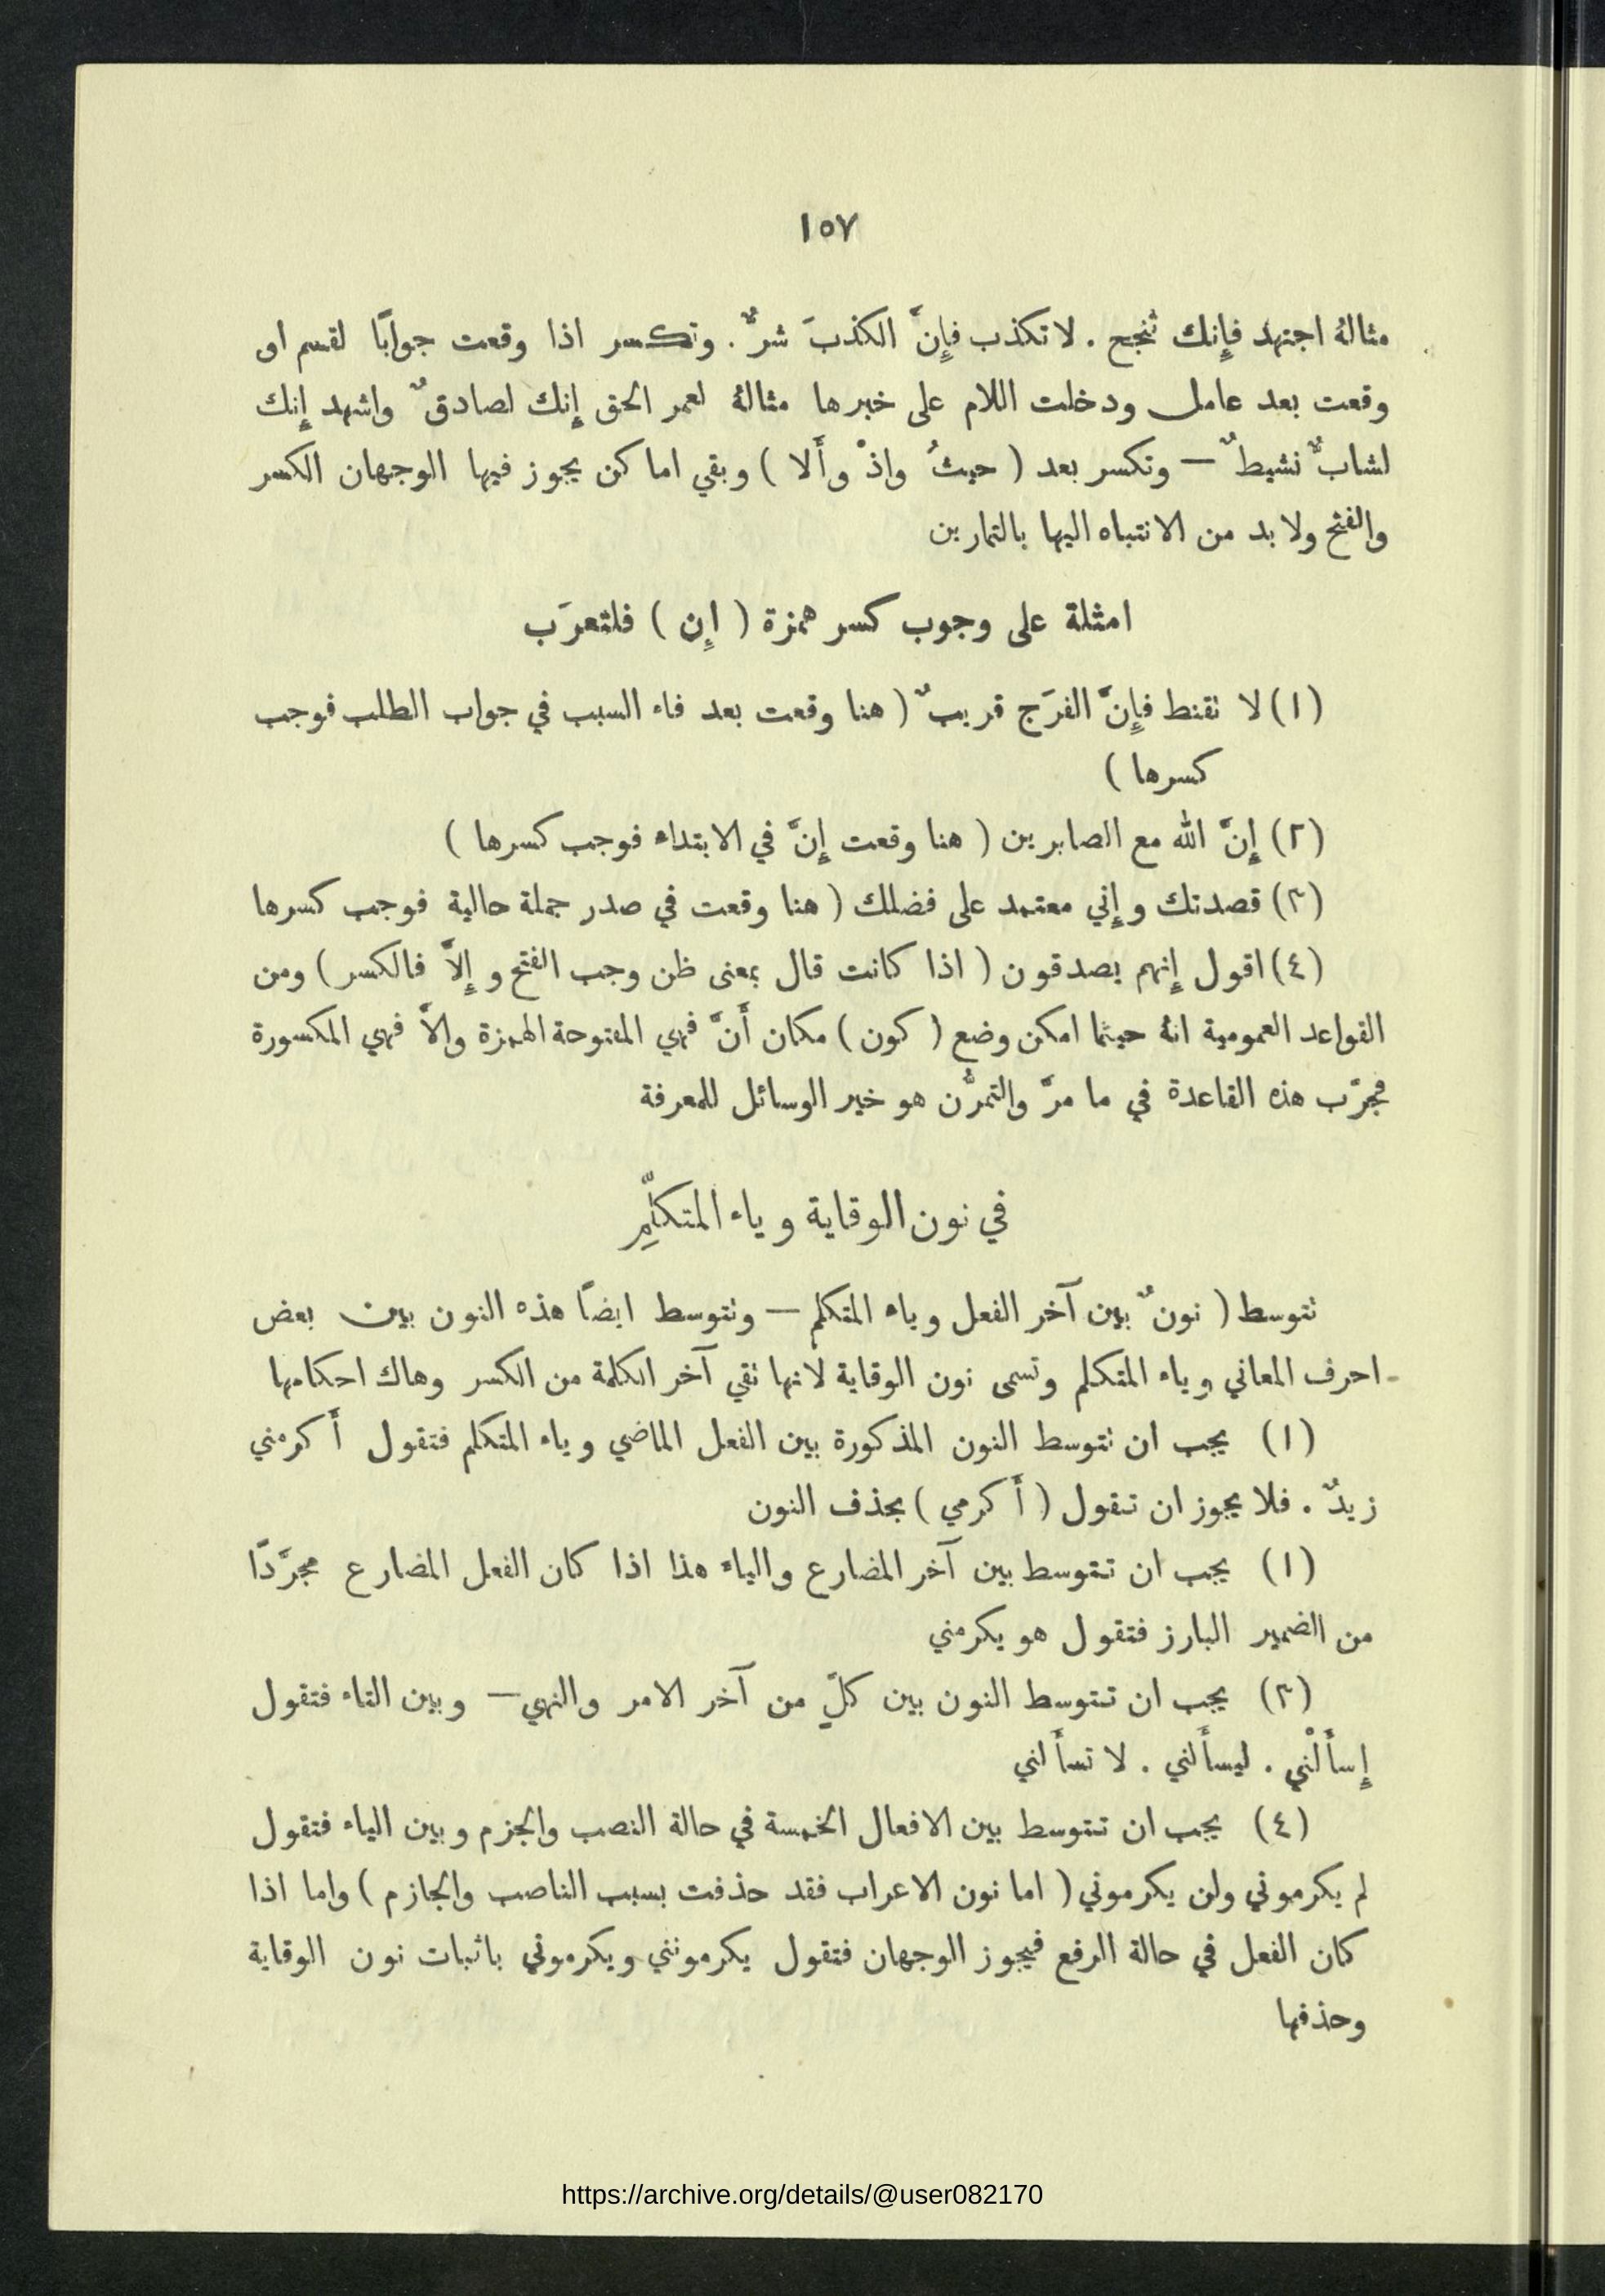 ١٥٧
مثالهُ اجتهد فإِنك تنجح . لا تكذب فإِنَّ الكذبَ شرٌّ . وتكسر اذا وقعت جوابًا لقسم او
وقعت بعد عامل ودخلت اللام على خبرها مثالهُ لعمر الحق إِنك لصادقٌ واشهد إِنك
لشابٌّ نشيطٌ — وتكسر بعد ( حيثُ واذْ وأَلا ) وبقي اماكن يجوز فيها الوجهان الكسر
والفتح ولا بد من الانتباه اليها بالتمارين
امثلة على وجوب كسر همزة ( إِن ) فلتعرَب
(١) لا تقنط فإِنَّ الفرَج قريبٌ ( هنا وقعت بعد فاء السبب في جواب الطلب فوجب
كسرها )
(٢) إِنَّ الله مع الصابرين ( هنا وقعت إِنَّ في الابتداء فوجب كسرها )
(٣) قصدتك وإِني معتمد على فضلك ( هنا وقعت في صدر جملة حالية فوجب كسرها
(٤) اقول إِنهم يصدقون ( اذا كانت قال بمعنى ظن وجب الفتح وإِلاَّ فالكسر ) ومن
القواعد العمومية انهُ حيثما امكن وضع ( كون ) مكان أَنَّ فهي المفتوحة الهمزة والاَّ فهي المكسورة
فجرّب هذه القاعدة في ما مرَّ والتمرُّن هو خير الوسائل للمعرفة
في نون الوقاية وياء المتكلّمِ
تتوسط ( نونٌ بين آخر الفعل وياء المتكلم — وتتوسط ايضًا هذه النون بين بعض
احرف المعاني وياء المتكلم وتسمى نون الوقاية لانها تقي آخر الكلمة من الكسر وهاك احكامها
(١) يجب ان تتوسط النون المذكورة بين الفعل الماضي وياء المتكلم فتقول أَكرمني
زيدٌ . فلا يجوز ان تقول ( أَكرمي ) بحذف النون
(١) يجب ان تتوسط بين آخر المضارع والياء هذا اذا كان الفعل المضارع مجرَّدًا
من الضمير البارز فتقول هو يكرمني
(٣) يجب ان تتوسط النون بين كلٍّ من آخر الامر والنهي — وبين التاء فتقول
إِسأَلْني . ليسأَلني . لا تسأَلني
(٤) يجب ان تتوسط بين الافعال الخمسة في حالة النصب والجزم وبين الياء فتقول
لم يكرموني ولن يكرموني ( اما نون الاعراب فقد حذفت بسبب الناصب والجازم ) واما اذا
كان الفعل في حالة الرفع فيجوز الوجهان فتقول يكرمونني ويكرموني باثبات نون الوقاية
وحذفها
https://archive.org/details/@user082170